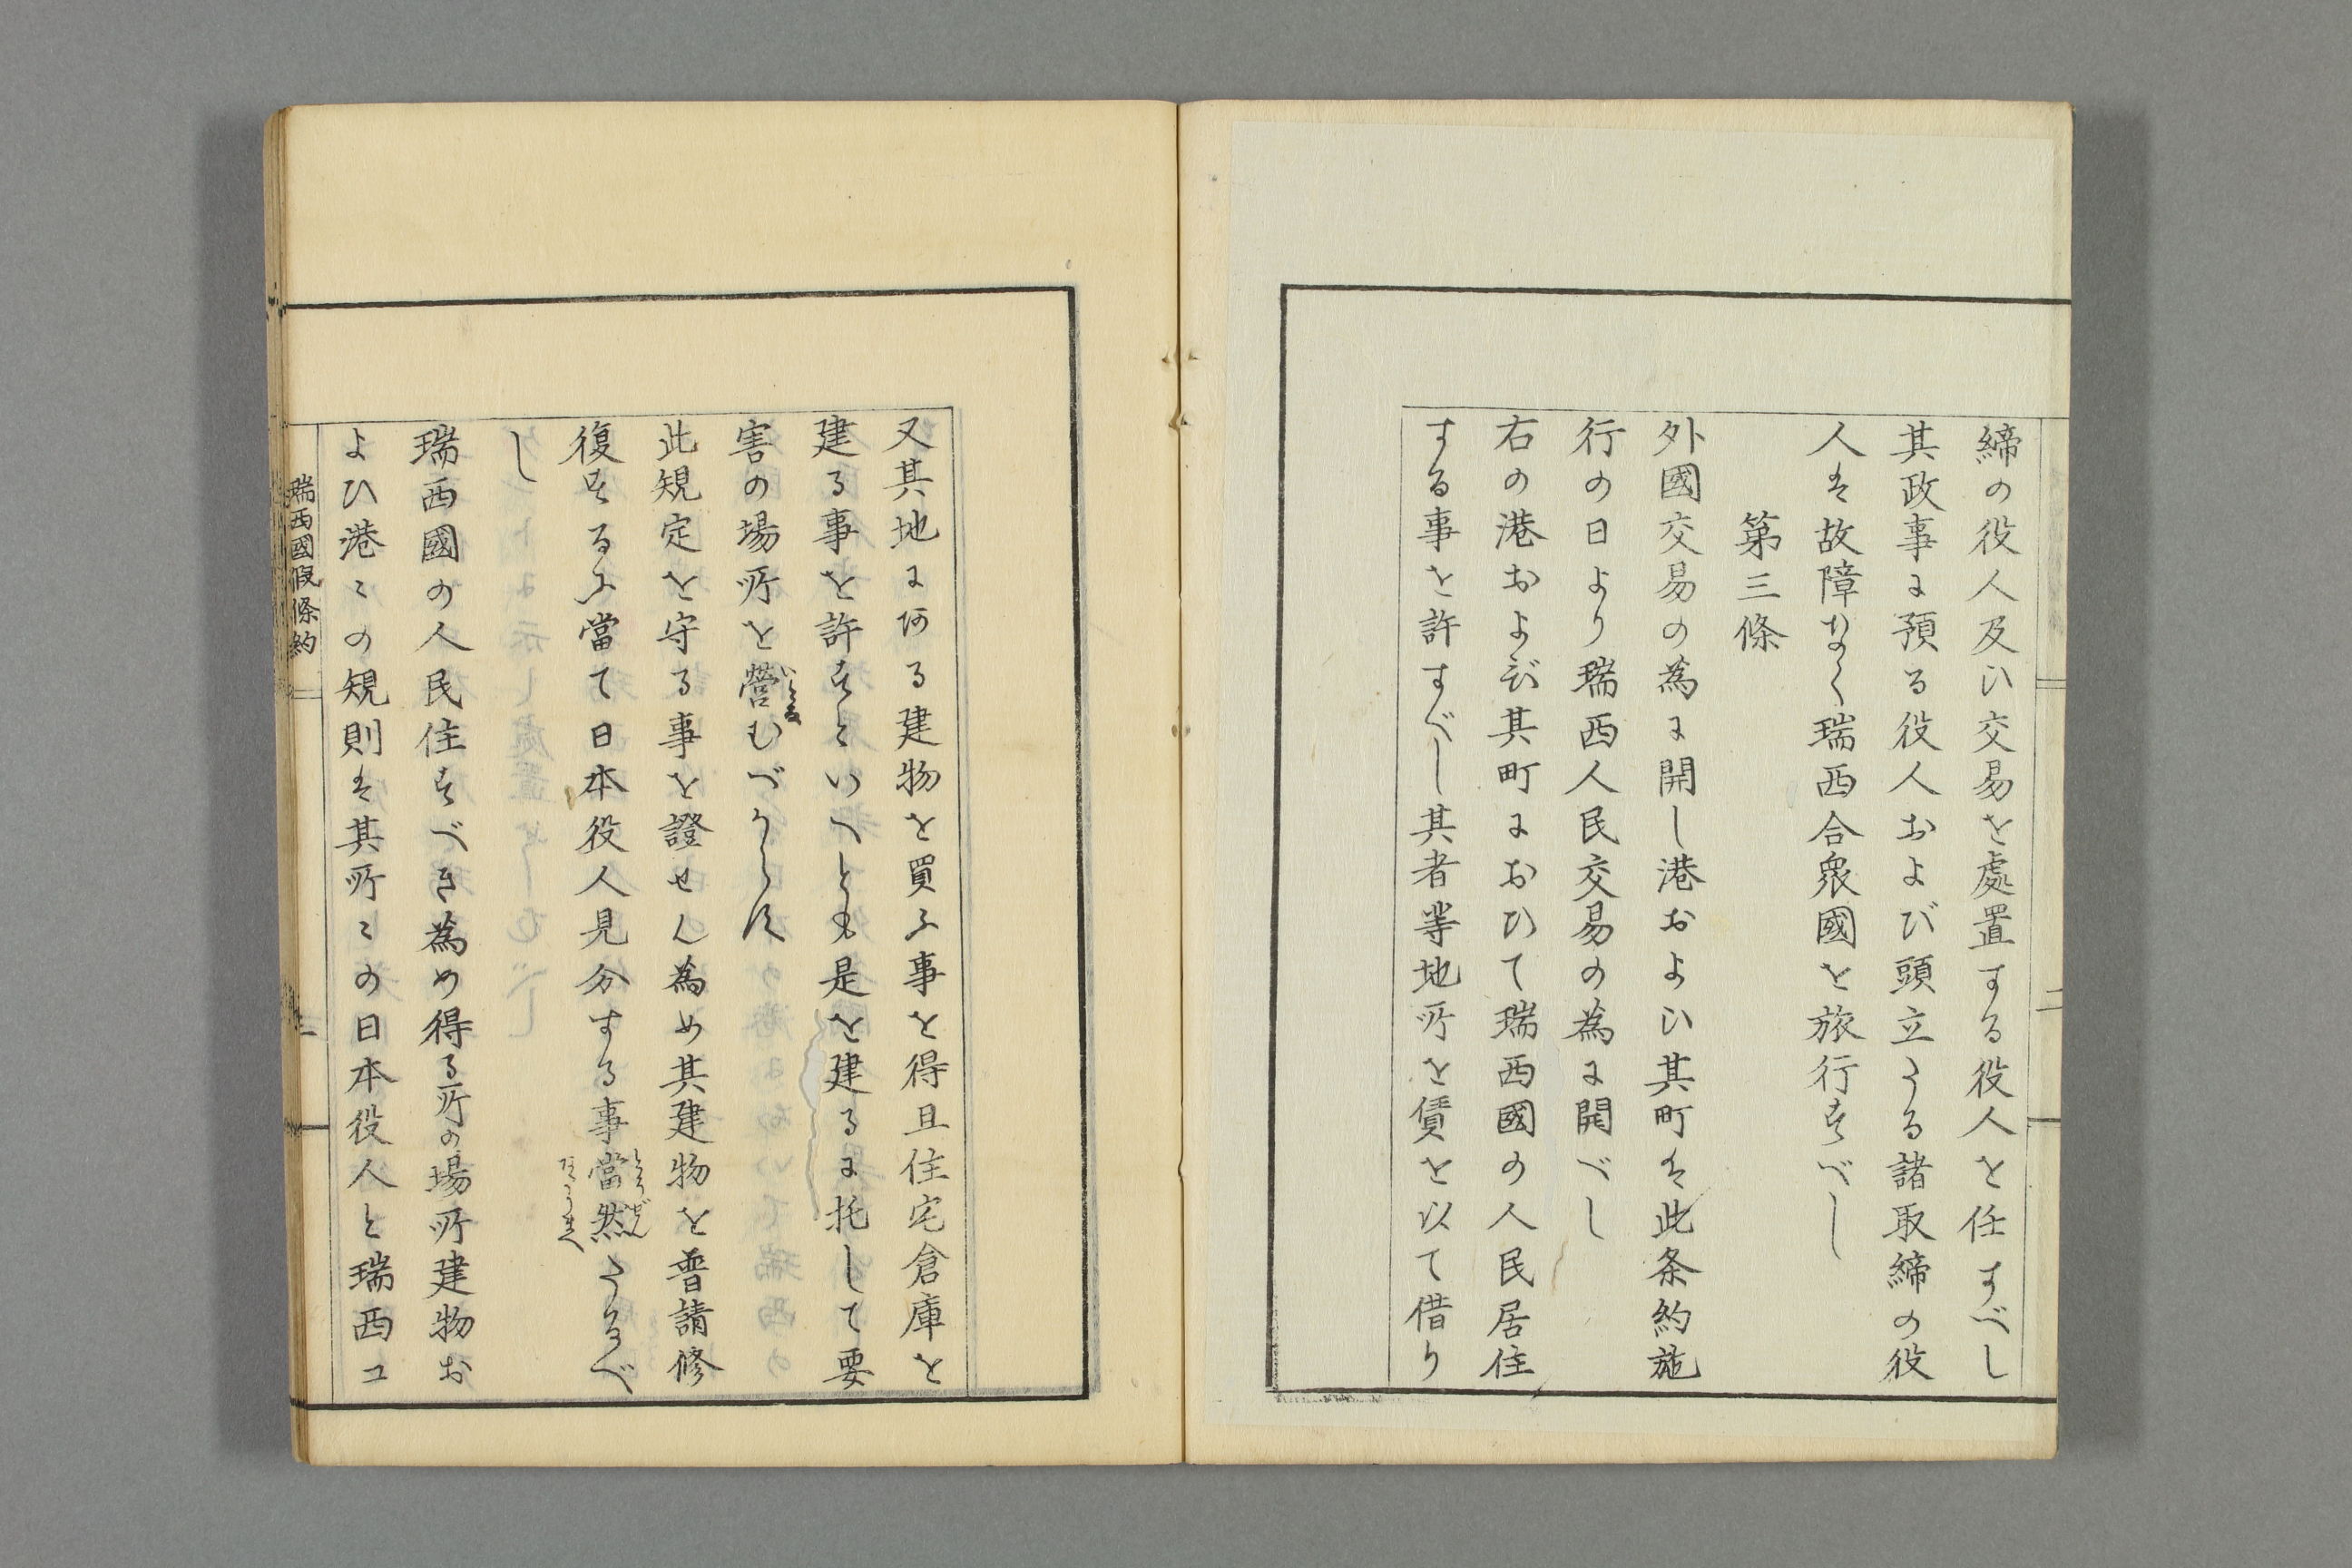 締の役人及ひ交易を處置する役人を任すべし
其政事に預る役人および頭立たる諸取締の役
人は故障なく瑞西合衆國を旅行すべし
第三條
外國交易の為に開し港およひ其町は此条約施
行の日より瑞西人民交易の為に開べし
右の港および其町におひて瑞西國の人民居住
する事を許すべし其者等地所を賃を以て借り
又其地に何る建物を買ふ事を得且住宅倉庫を
建る事を許すといへとも是を建るに托して要
害の場所を營むべからす
いとな
此規定を守る事を證せん為め其建物を普請修
復するに當て日本役人見分する事當然たるべ
とうぜん
し
瑞西國の人民住すべき為め得る所の場所建物お
よひ港〻の規則は其所〻の日本役人と瑞西コ
瑞西國假條約
二
三